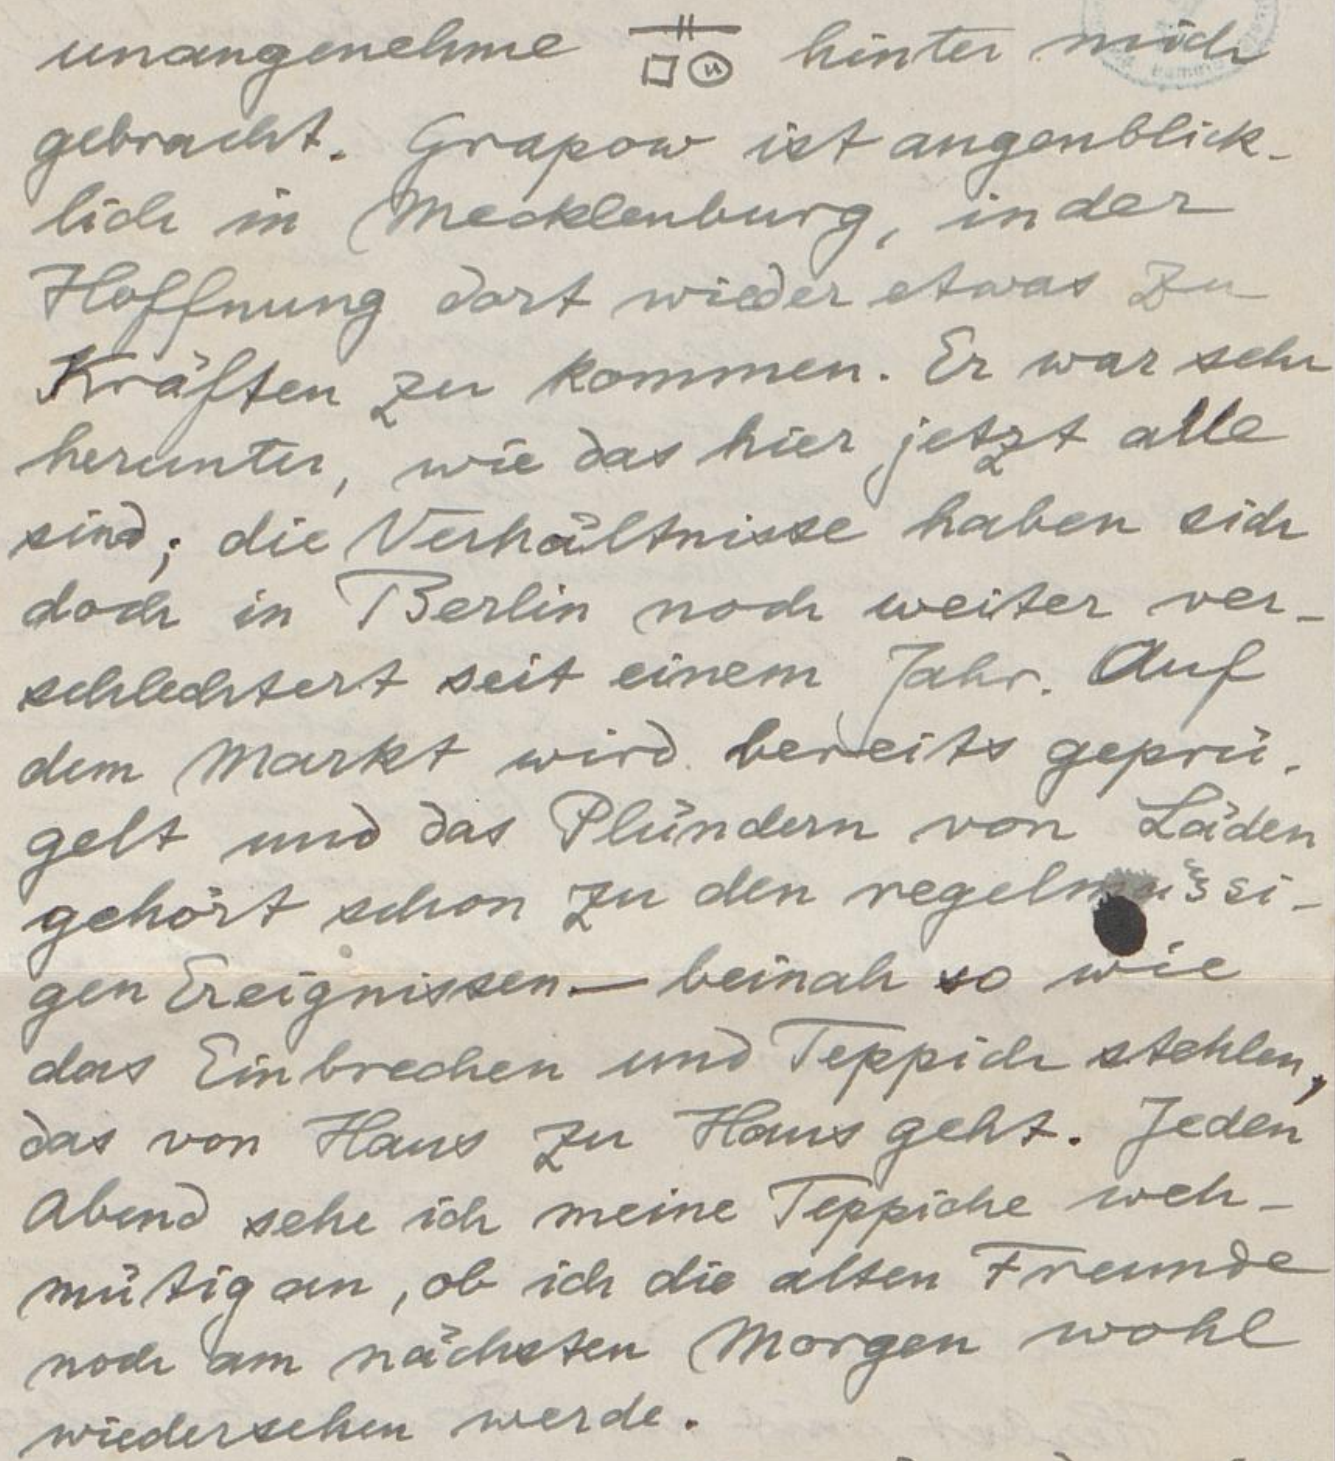 unangenehme hinter mich
gebracht. Grapow ist augenblick-
lich in Mecklenburg, in der
Hoffnung dort wieder etwas zu
Kräften zu kommen. Er war sehr
herunter, wie das hier jetzt alle
sind; die Verhältnisse haben sich
doch in Berlin noch weiter ver-
schlechtert seit einem Jahr. Auf
dem Markt wird bereits geprü-
gelt und das Plündern von Läden
gehört schon zu den regelmässi-
gen Ereignissen — beinah so wie
das Einbrechen und Teppich stehlen,
das von Haus zu Haus geht. Jeden
Abend sehe ich meine Teppiche weh-
mütig an, ob ich die alten Freunde
noch am nächsten Morgen wohl
wiedersehen werde.